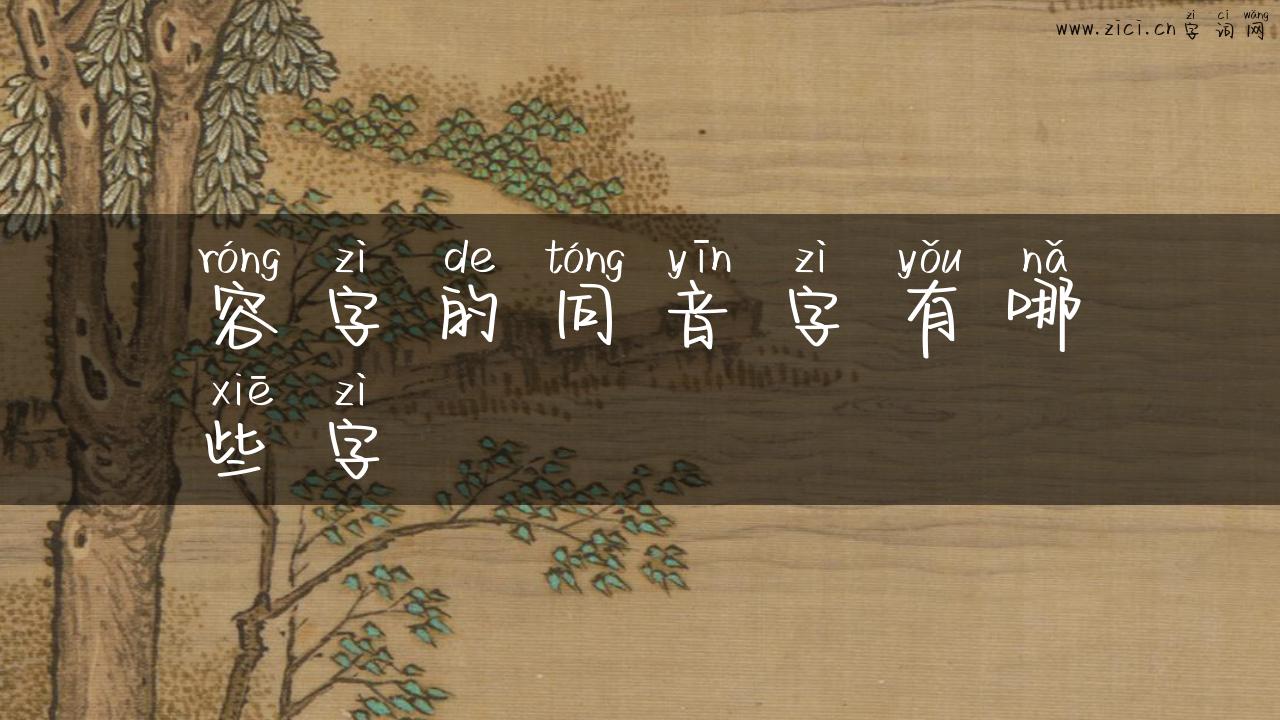 zì cí wǎng
www.zici.cn 字词网
róng zì de tóng yīn zì yǒu nǎ
容字的同音字有哪
xiē zì
些字